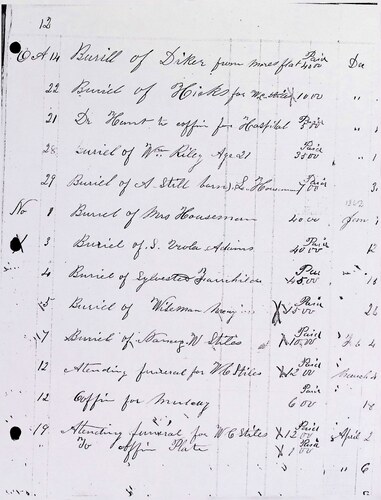 12
Oct 14 Buriel of Diker from mores flat Paid 40.00 Da
22 Buriel of Hicks for W. Stiles 10 00 "
21 Dr Hunt to coffin for Hospital Paid 5 00 "
28 Buriel of Wm Riley Age 21 Paid 35 00 "
29 Buriel of A. Still born Paid 7 00
1862
No 1 Buriel of Mrs Houseman 40.00 Jan
X 3 Buriel of S. Viola Adams Paid 40.00 12
4 Buriel of Sylvester Fairchilds Paid 45.00
15 Buriel of Wideman Paid X 5.00
17 Buriel of Nancy W Stiles Paid X 10.00 Feb 4
12 Attending funeral for W C Stiles Paid X 12 00 March
12 Coffin for Paid 6 00 18
19 Attending funeral for W C Stiles Paid X 12 00 April 2
" To coffin Plate Paid X 1 00 " 6